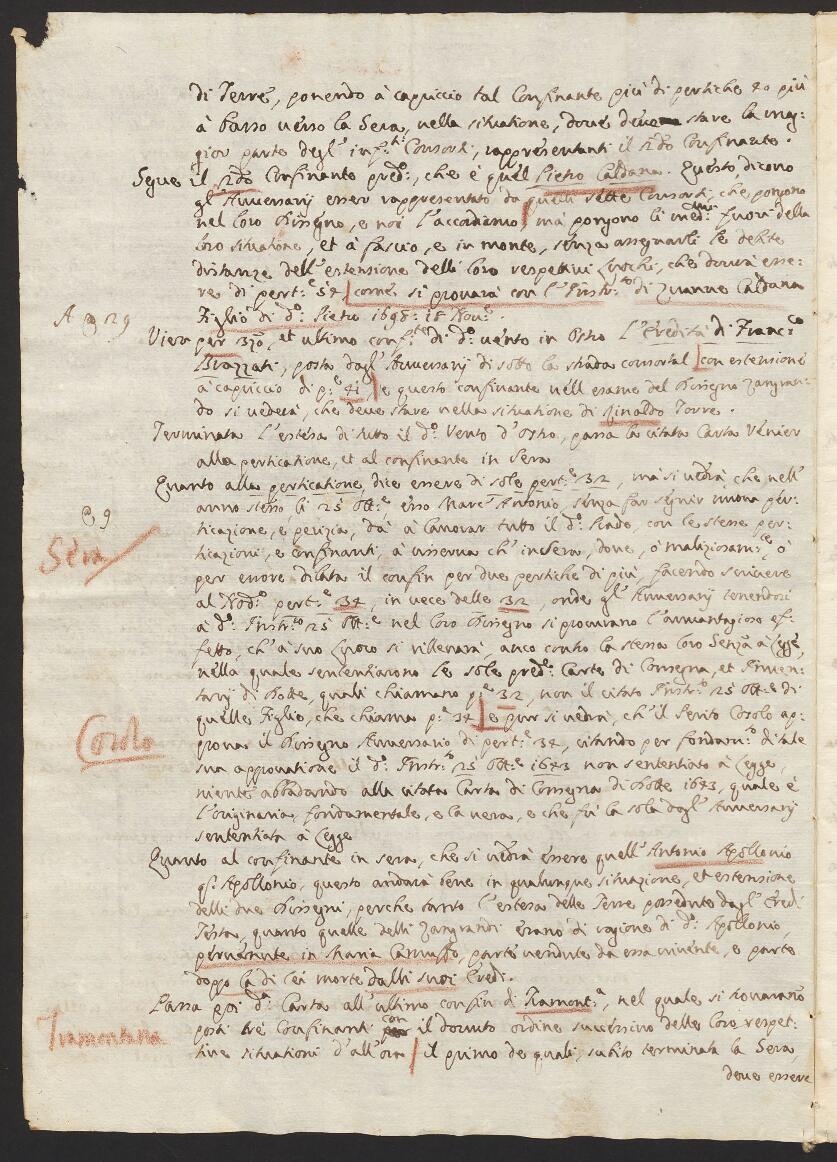 di Terre, ponendo à capriccio tal Confinante più di pertiche 20 più
à basso verso la Sera, nella situatione, dove deve stare la mag-
gior parte degl' inf.ti Consorti, rappresentanti il s.do Confinante.
Segue il s.do Confinante pred.o, che è quel Pietro Caldana. Questo, dicono
gl'Avversarij esser rappresentato da quelli sette Consorti, che pongono
nel loro Dissegno, e noi l'accordiamo, mà pongono li med.mi fuori della
loro situatione, et à fascio, e in monte, senza assegnarli le debite
distanze dell'estensione delli loro respettivi Luochi, che dovrà esse-
re di pert.e 54 come si provarà con l'Instr.to di Zuanne Caldana
Figlio di d.o Pietro 1698: 18 Nov.e
A 29
Vien per 3zo, et ultimo conf.te di d.o vento in Ostro l'Eredità di Franc.co
Brazzati, posta dagl'Avversarij di sotto la strada consortal con estensione
à capriccio di p.e 41, e questo confinante nell'esame del Dissegno Zangran-
do si vederà, che deve stare nella situatione di Rinaldo Torre.
Terminata l'estesa di tutto il d.o Vento d'Ostro, passa la citata Carta Venier
alla perticatione, et al confinante in Sera
Quanto alla perticatione, dice essere di sole pert.e 32, mà si vedrà, che nell'
anno stesso li 25 Ott.e esso Marc'Antonio, senza far seguir nuova per-
ticazione, e perizia, dà à lavorar tutto il d.o Prado, con le stesse per-
9
Sera
ticazioni, e confinanti, à riserva ch'in Sera, dove, ò malizios.te, ò
per errore dilata il confin per due pertiche di più, facendo scrivere
al Nod.o pert.e 34, in vece delle 32, onde gl'Avversarij tenendosi
à d.o Instr.to 25 Ott.e nel loro Dissegno si procurano l'avvantagioso ef-
fetto, ch'à suo Luoco si rillevarà, anco contro la stessa loro Senz.a à Legge,
nella quale sentenziarono le sole pred.e Carte di Consegna, et Inven-
tarij di Dotte, quali chiamano p.e 32, non il citato Instr.to 25 Ott.e di
quelle Figlio, che chiama p.e 34 e pur si vedrà, ch'il Perito Cosolo ap-
Cosolo
prova il Dissegno Avversario di pert.e 34, citando per fondam.to di tale
sua approvatione il d.o Instr.to 25 Ott.e 1643 non sentenziato à Legge,
niente abbadando alla citata Carta di Consegna di Dotte 1643, quale è
l'originaria, fondamentale, e la vera, e che fù la sola dagl'Avversarij
sentenziata à Legge
Quanto al confinante in sera, che si vedrà essere quell'Antonio Apollonio
q. Apollonio, questo andarà bene in qualunque situazione, et estensione
delli due Dissegni, perche tanto l'estesa delle Terre possedute dagl'Eredi
Testa, quanto quelle delli Zangrandi erano di ragione di d.o Apollonio,
pervenute in Maria Camuffo, parte vendute da essa vivente, e parte
doppo la di lei morte dalli suoi Eredi.
Passa poi d.a Carta all'ultimo confin di Tramont.a, nel quale si trovarano
Tramontana
posti tre Confinanti con il dovuto ordine successivo delle loro respet-
tive situationi d'all'ora, il primo de quali, subito terminata la Sera,
deve essere